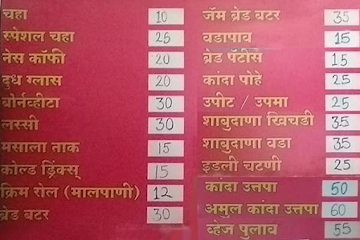 चहा 10
स्पेशल चहा 25
नेस कॉफी 20
दुध ग्लास 20
बोर्नव्हीटा 30
लस्सी 30
मसाला ताक 15
कोल्ड ड्रिंक्स् 15
क्रिम रोल (मालपाणी) 12
ब्रेड बटर 30
जॅम ब्रेड बटर 35
वडापाव 15
ब्रेड पॅटीस 15
कांदा पोहे 25
उपीट / उपमा 25
शाबुदाणा खिचडी 35
शाबुदाणा वडा 35
इडली चटणी 25
कांदा उत्तपा 50
अमुल कांदा उत्तपा 60
व्हेज पुलाव 55